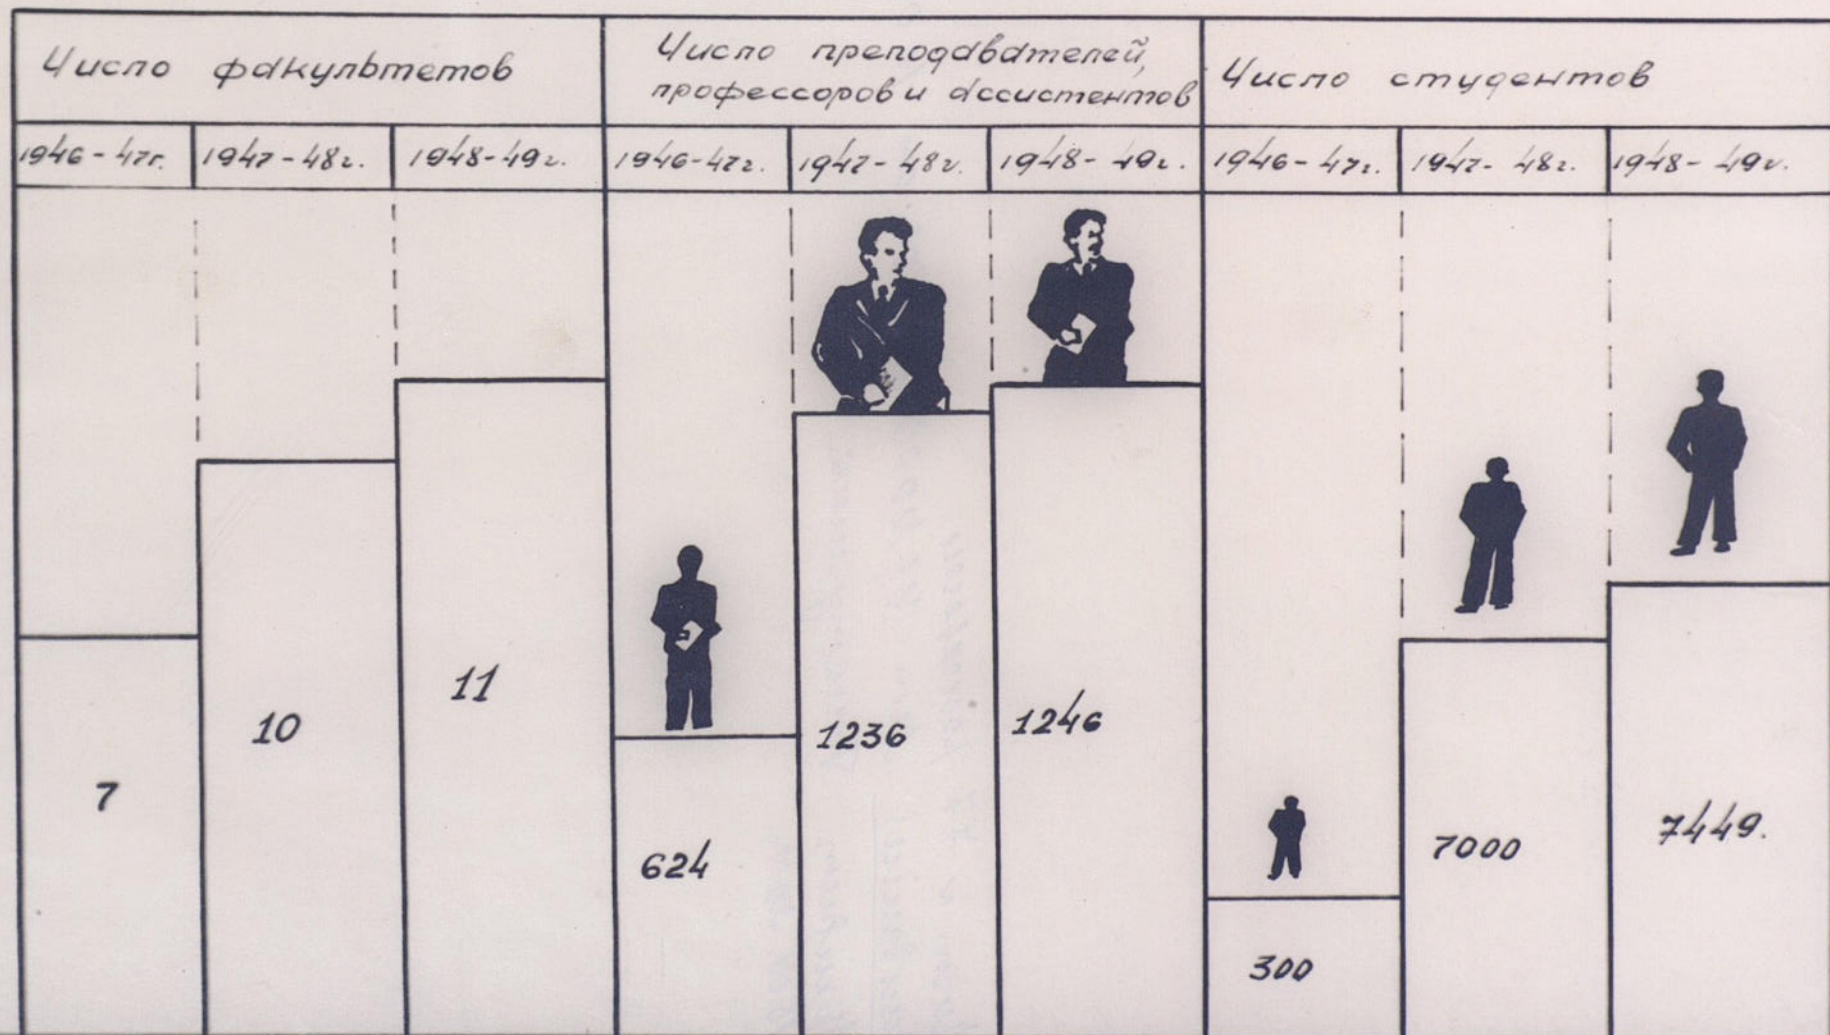 Число факультетов
Число преподавателей,
профессоров и ассистентов
Число студентов
1946-47г. 1947-48г. 1948-49г. 1946-47г. 1947-48г. 1948-49г. 1946-47г. 1947-48г. 1948-49г.
7 10 11 624 1236 1246 300 7000 7449.